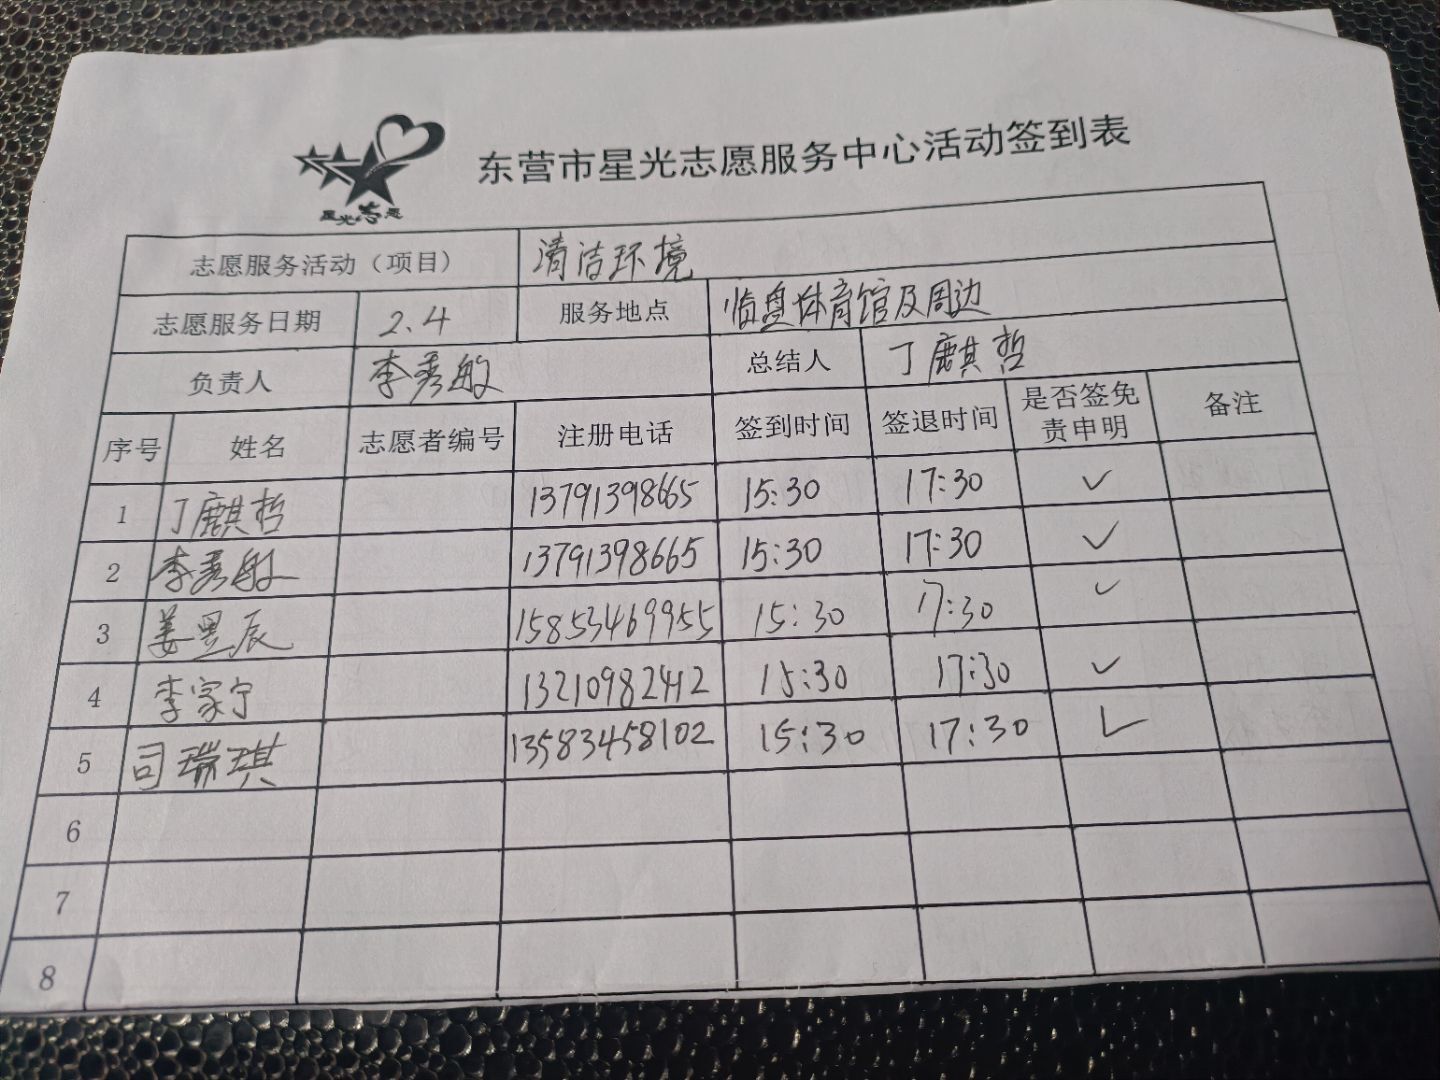 星光志愿
东营市星光志愿服务中心活动签到表
志愿服务活动（项目） 清洁环境
志愿服务日期 2.4 服务地点 临盘体育馆及周边
负责人 李秀敏 总结人 丁麒哲
序号 姓名 志愿者编号 注册电话 签到时间 签退时间 是否签免责申明 备注
1 丁麒哲 13791398665 15:30 17:30 ✓
2 李秀敏 13791398665 15:30 17:30 ✓
3 姜昱辰 15853469955 15:30 17:30 ✓
4 李家宁 13210982412 15:30 17:30 ✓
5 司瑞琪 13583458102 15:30 17:30 ✓
6
7
8